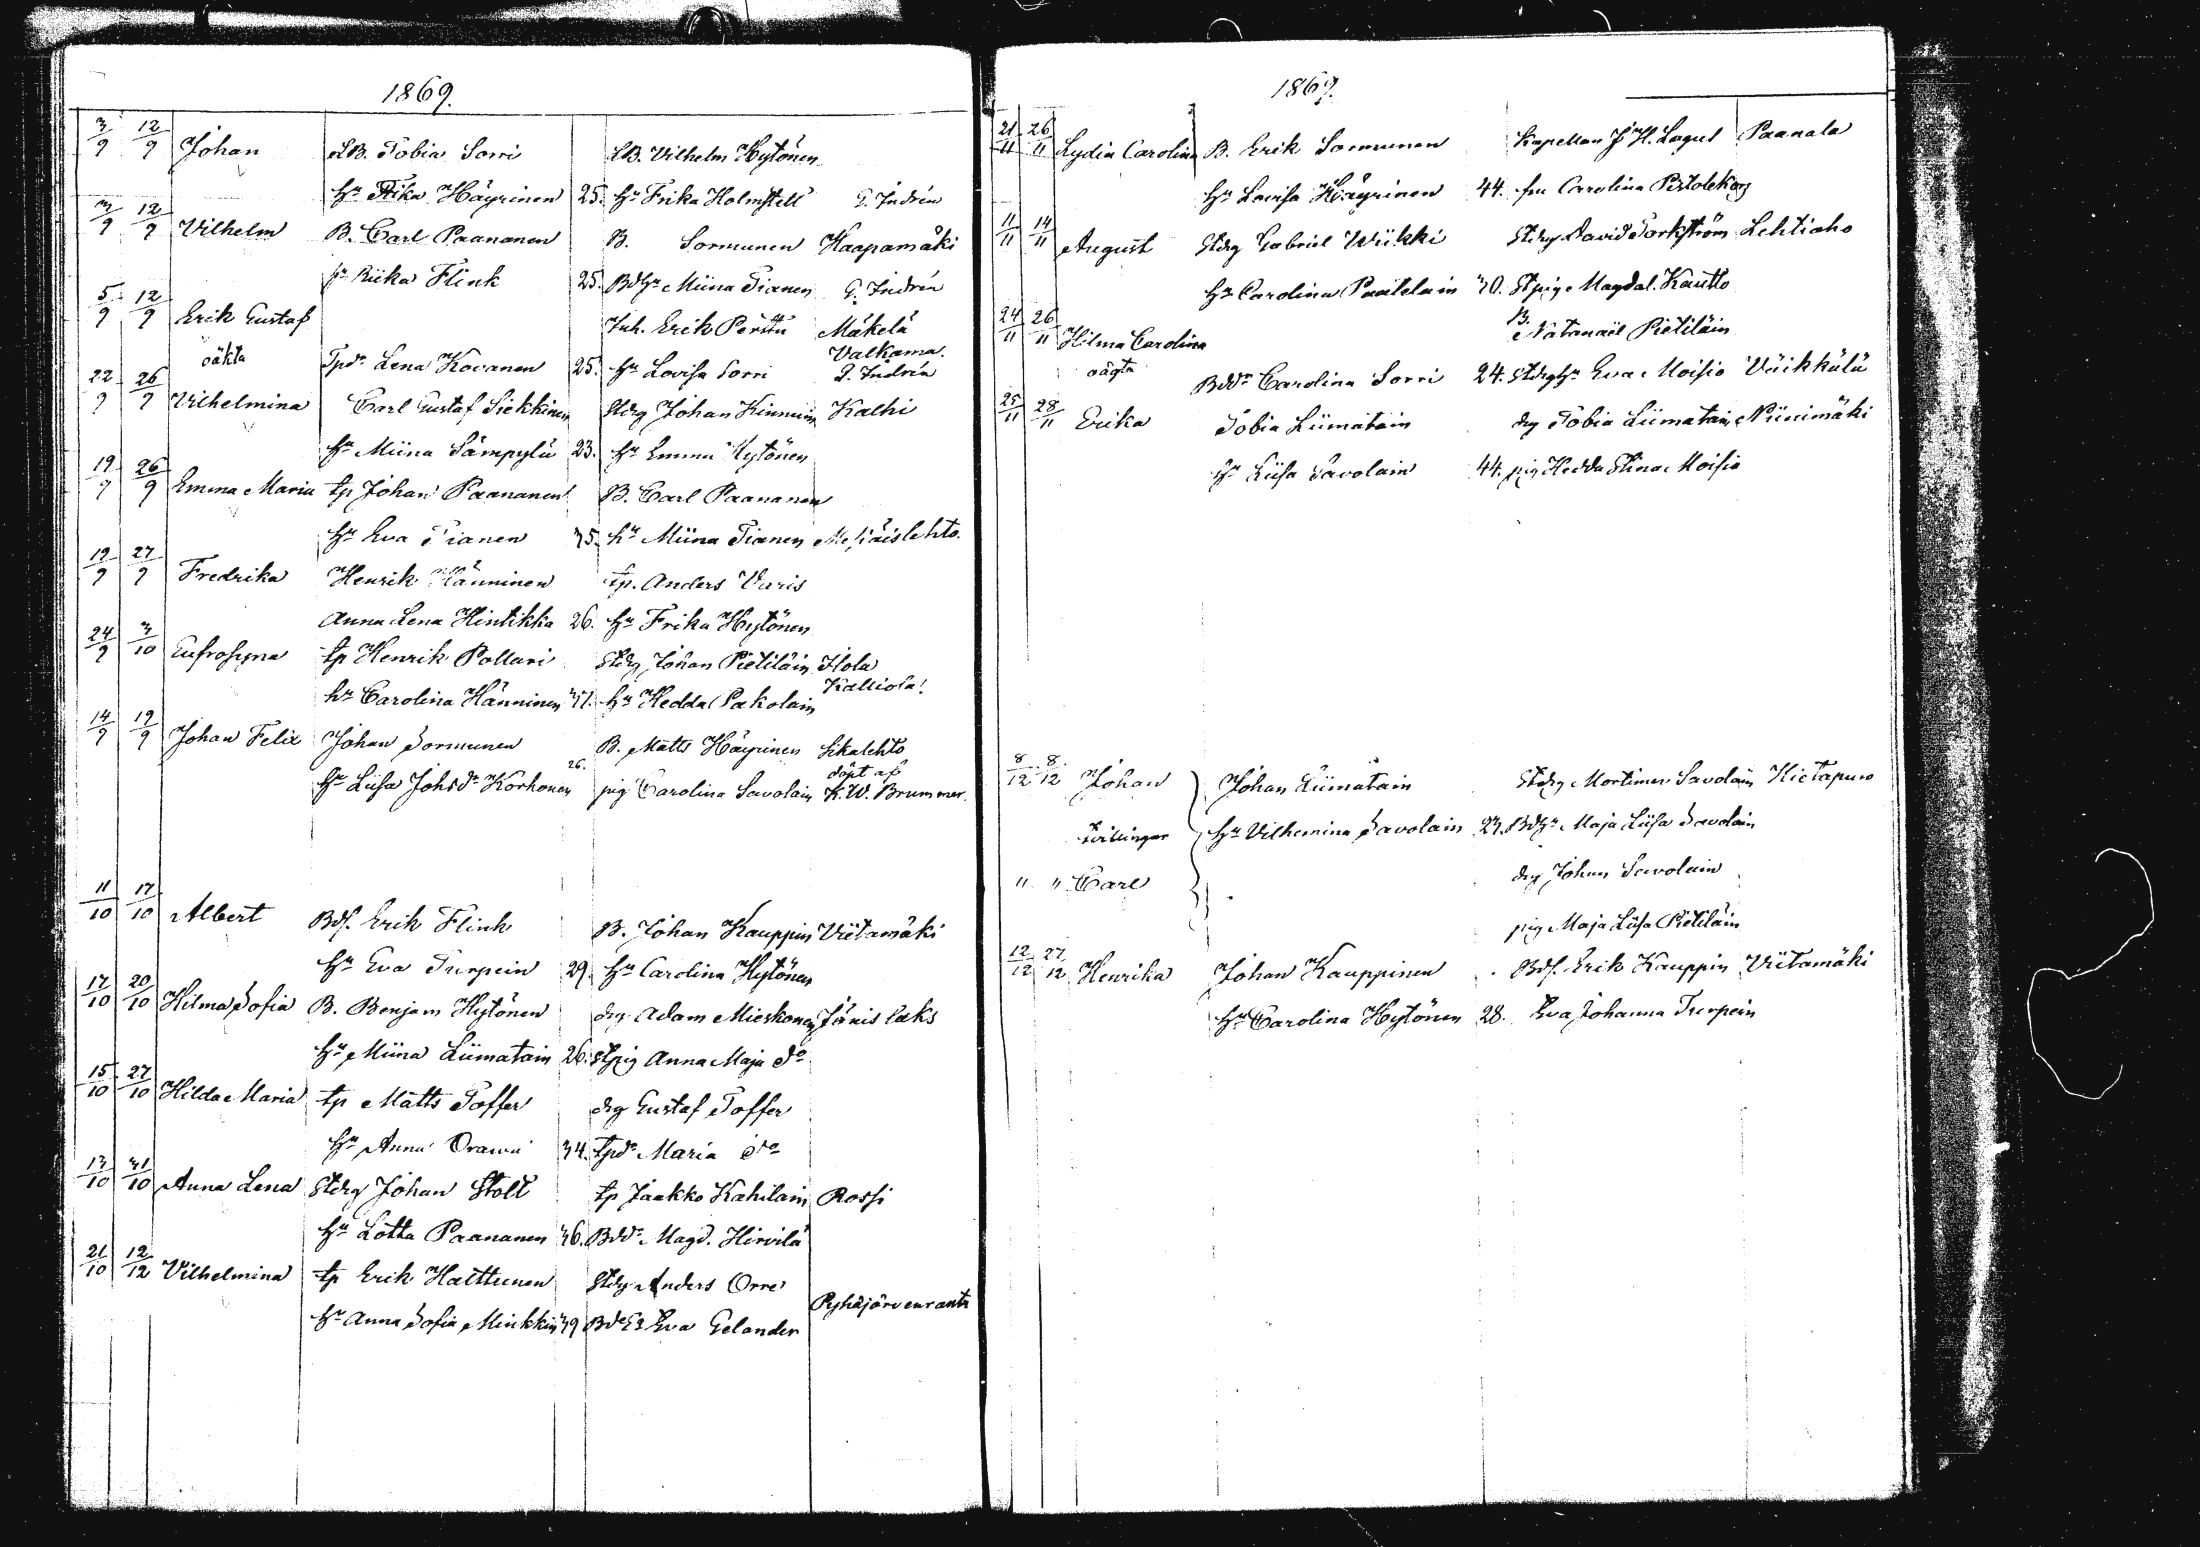 1869.
3/9 12/9 Johan LB. Tobia Sorri LB. Vilhelm Hytönen
hu Fika Häyrinen 25. hu Frika Holmstell G. Indrén
3/9 12/9 Vilhelm B. Carl Paananen B. Sormunen Haapamäki
hu Riika Flink 25. Bdhu Miina Tianen G. Indrén
5/9 12/9 Erik Gustaf Inh. Erik Perttu Mäkelä
oäkta Tpdr Lena Kovanen 25. hu Lovisa Sorri Valkama.
G. Indrén
22/9 26/9 Vilhelmina Carl Gustaf Siekkinen Stdrg Johan Kinnuin Kalhi
hu Miina Sämpylä 23. hu Emma Hytönen
19/9 26/9 Emma Maria tp Johan Paananen B. Carl Paananen
hu Eva Tianen 35. hu Miina Tianen Mesiäislehto.
19/9 27/9 Fredrika Henrik Hänninen tp. Anders Varis
Anna Lena Hintikka 26. hu Frika Hytönen
24/9 3/10 Eufrosyna tp Henrik Pollari Stdrg Johan Pietiläin Ilola
Kalliola!
hu Carolina Hänninen 37. hu Hedda Pakolain
14/9 19/9 Johan Felix Johan Sormunen B. Matts Häyrinen Sikalehto
hu Liisa Johsdr Korhonen 26. pig Carolina Savolain döpt af
K. W. Brummer.
11/10 17/10 Albert Bds. Erik Flink B. Johan Kauppin Viitamäki
hu Eva Turpein 29. hu Carolina Hytönen
17/10 20/10 Hilma Sofia B. Benjam Hytönen drg Adam Mieskonen Jänislaks
hu Miina Liimatain 26. Stpig Anna Maja do
15/10 27/10 Hilda Maria tp Matts Toffer drg Gustaf Toffer
hu Anna Orawa 34. tpdr Maria do
13/10 31/10 Anna Lena Stdrg Johan Stolt tp Jaakko Kahilain Rossi
hu Lotta Paananen 36. Bddr Magd. Hirvilä
21/10 12/12 Vilhelmina tp Erik Halttunen Stdrg Anders Orre
Pyhäjärvenranta
hu Anna Sofia Minkkin 39 Eva Gelander
1869.
21/11 26/11 Lydia Carolina B. Erik Sormunen Kapellan J. H. Lagus Paanala
hu Lovisa Häyrinen 44. fru Carolina Pistolekors
11/11 14/11 August Stdrg Gabriel Wiikki Stdrg David Torkström Lehtiaho
hu Carolina Paatelain 30. Stpig Magdal. Kautto
24/11 26/11 Hilma Carolina B. Natanaël Pietiläin
oägta Bddr Carolina Sorri 24. Stdrghu Eva Moisio Väikkälä
25/11 28/11 Erika Tobia Liimatain drg Tobia Liimatain Niinimäki
hu Liisa Savolain 44. pig Hedda Stina Moisio
8/12 8/12 Johan Johan Liimatain Stdrg Mortimer Savolain Kietapuro
tvillingar hu Vilhemina Savolain 23. Bdhu Maja Liisa Savolain
" " Carl drg Johan Savolain
pig Maja Liisa Pietiläin
12/12 27/12 Henrika Johan Kauppinen Bds. Erik Kauppin Viitamäki
hu Carolina Hytönen 28. Eva Johanna Turpein